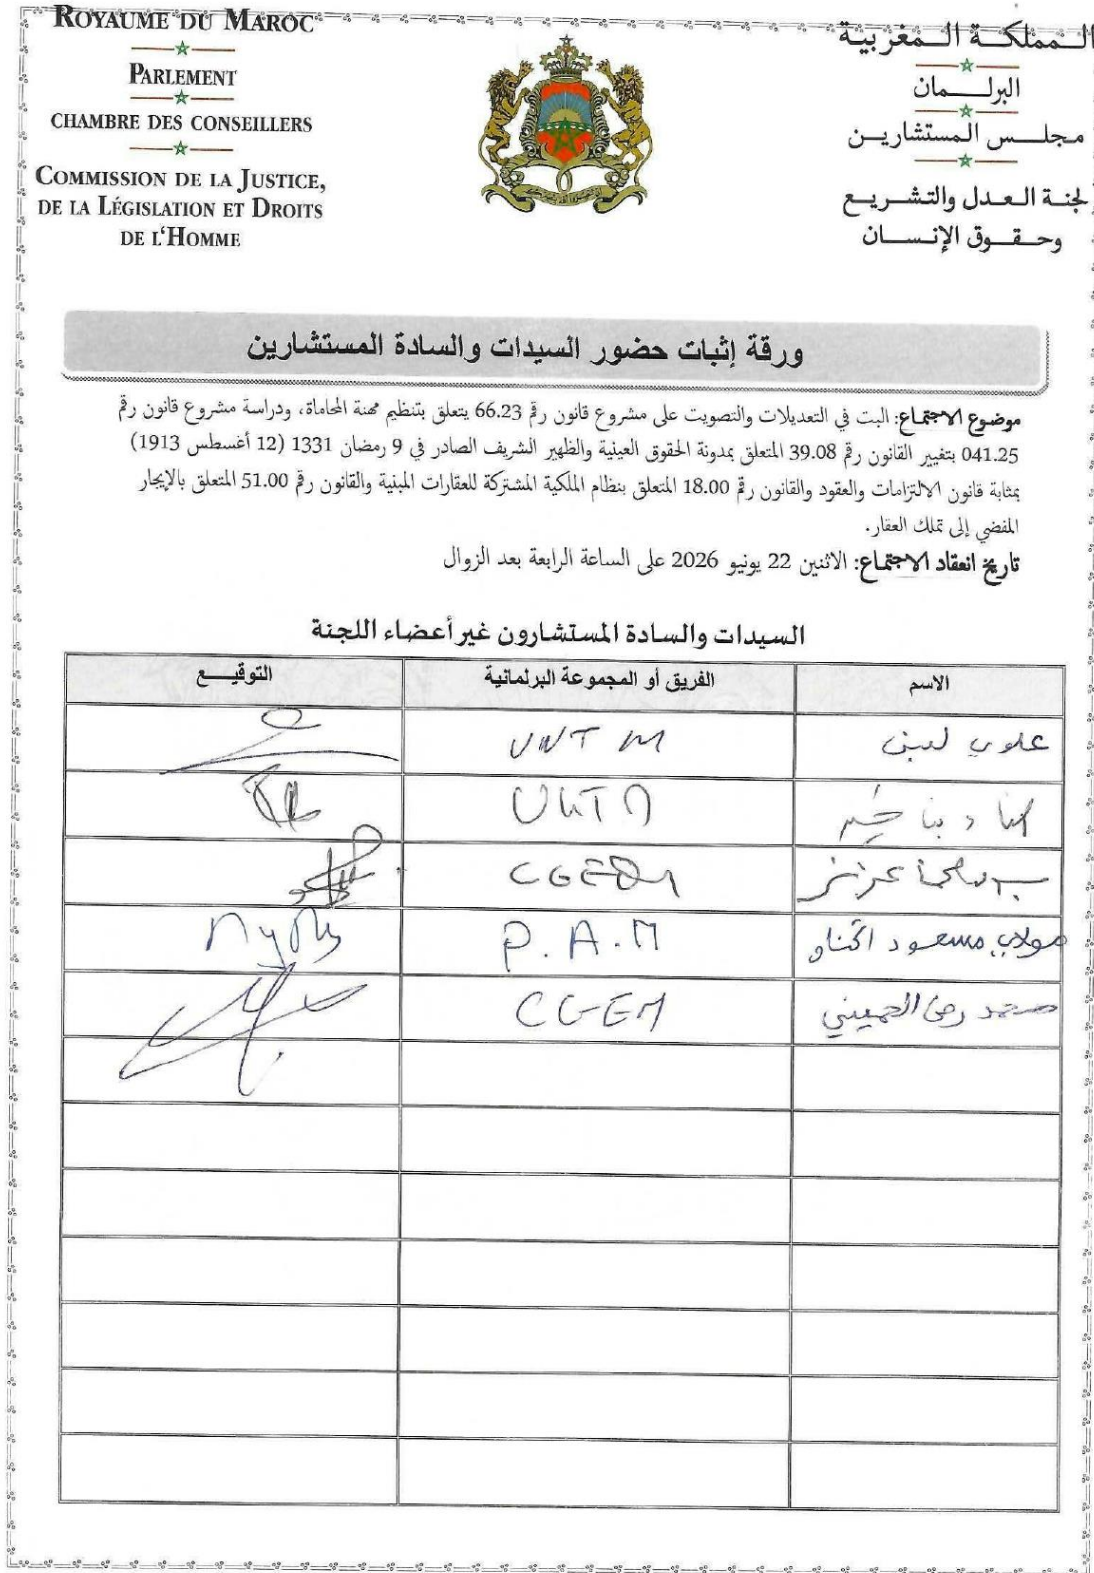 ROYAUME DU MAROC
PARLEMENT
CHAMBRE DES CONSEILLERS
COMMISSION DE LA JUSTICE,
DE LA LÉGISLATION ET DROITS
DE L'HOMME
المملكة المغربية
البرلمان
مجلس المستشارين
لجنة العدل والتشريع
وحقوق الإنسان
ورقة إثبات حضور السيدات والسادة المستشارين
موضوع الاجتماع: البت في التعديلات والتصويت على مشروع قانون رقم 66.23 يتعلق بتنظيم مهنة المحاماة، ودراسة مشروع قانون رقم
041.25 بتغيير القانون رقم 39.08 المتعلق بمدونة الحقوق العينية والظهير الشريف الصادر في 9 رمضان 1331 (12 أغسطس 1913)
بمثابة قانون الالتزامات والعقود والقانون رقم 18.00 المتعلق بنظام الملكية المشتركة للعقارات المبنية والقانون رقم 51.00 المتعلق بالإيجار
المفضي إلى تملك العقار.
تاريخ انعقاد الاجتماع: الاثنين 22 يونيو 2026 على الساعة الرابعة بعد الزوال
السيدات والسادة المستشارون غير أعضاء اللجنة
الاسم الفريق أو المجموعة البرلمانية التوقيع
علوي UNTM
UNTM
عزيز CGEM
مولاي مسعود P.A.M
محمد رضى الحميني CGEM